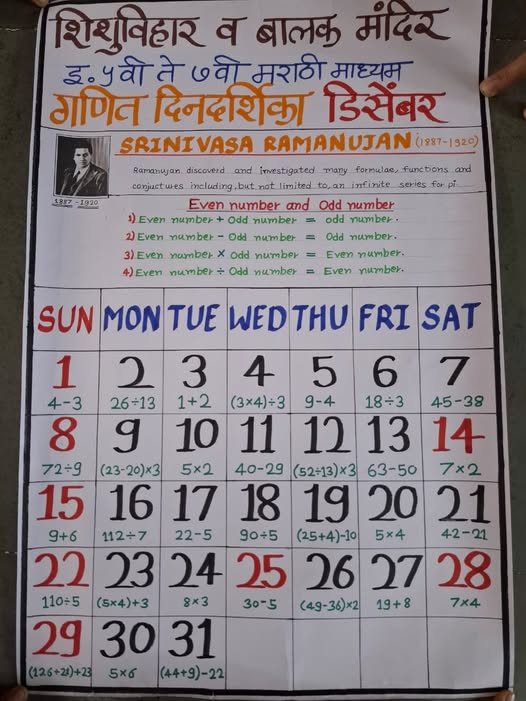 शिशुविहार व बालक मंदिर
इ. ५वी ते ७वी मराठी माध्यम
गणित दिनदर्शिका डिसेंबर
SRINIVASA RAMANUJAN (1887-1920)
Ramanujan discoverd and investigated many formulae, functions and
conjuctures including, but not limited to, an infinite series for pi.
1887-1920
Even number and Odd number
1) Even number + Odd number = odd number.
2) Even number - Odd number = Odd number.
3) Even number × Odd number = Even number.
4) Even number ÷ Odd number = Even number.
SUN MON TUE WED THU FRI SAT
1 2 3 4 5 6 7
4-3 26÷13 1+2 (3×4)÷3 9-4 18÷3 45-38
8 9 10 11 12 13 14
72÷9 (23-20)×3 5×2 40-29 (52÷13)×3 63-50 7×2
15 16 17 18 19 20 21
9+6 112÷7 22-5 90÷5 (25+4)-10 5×4 42-21
22 23 24 25 26 27 28
110÷5 (5×4)+3 8×3 30-5 (49-36)×2 19+8 7×4
29 30 31
5×6 (44+9)-22